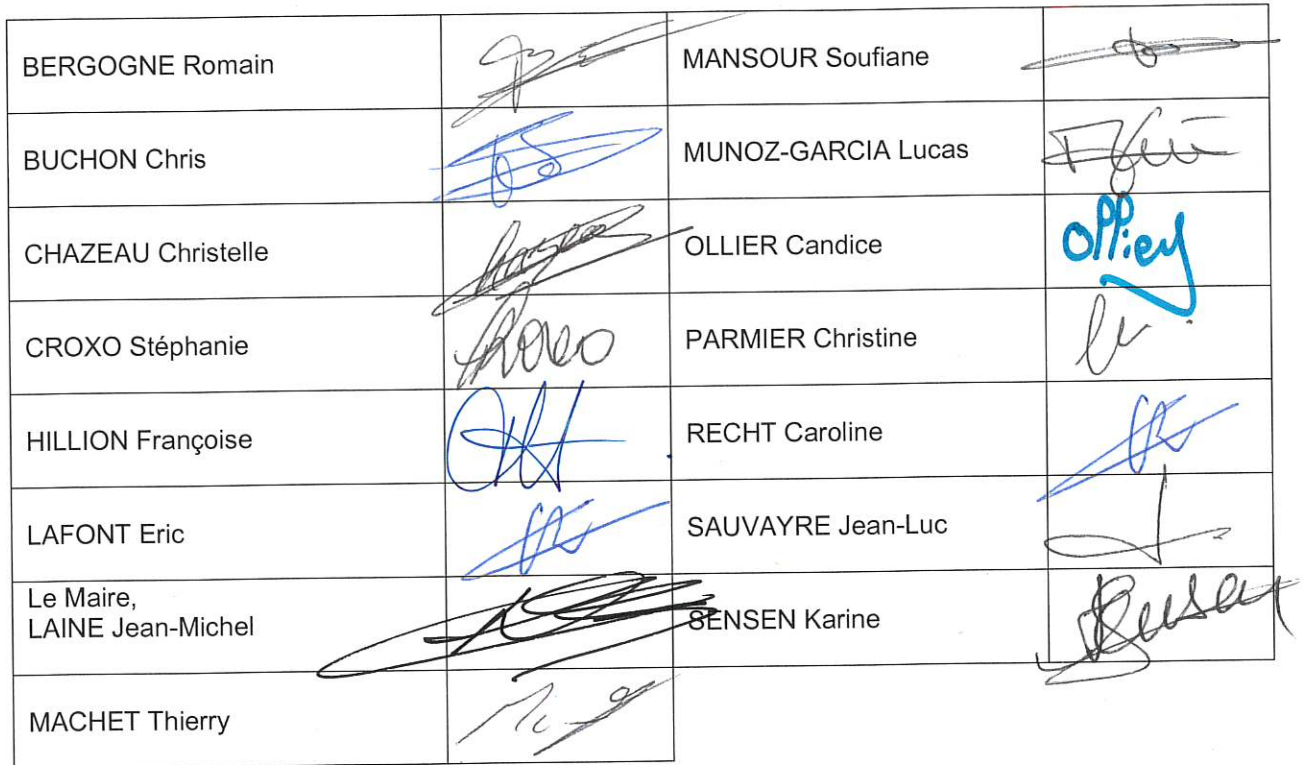 BERGOGNE Romain
MANSOUR Soufiane
BUCHON Chris
MUNOZ-GARCIA Lucas
CHAZEAU Christelle
OLLIER Candice
CROXO Stéphanie
PARMIER Christine
HILLION Françoise
RECHT Caroline
LAFONT Eric
SAUVAYRE Jean-Luc
Le Maire,
LAINE Jean-Michel
SENSEN Karine
MACHET Thierry